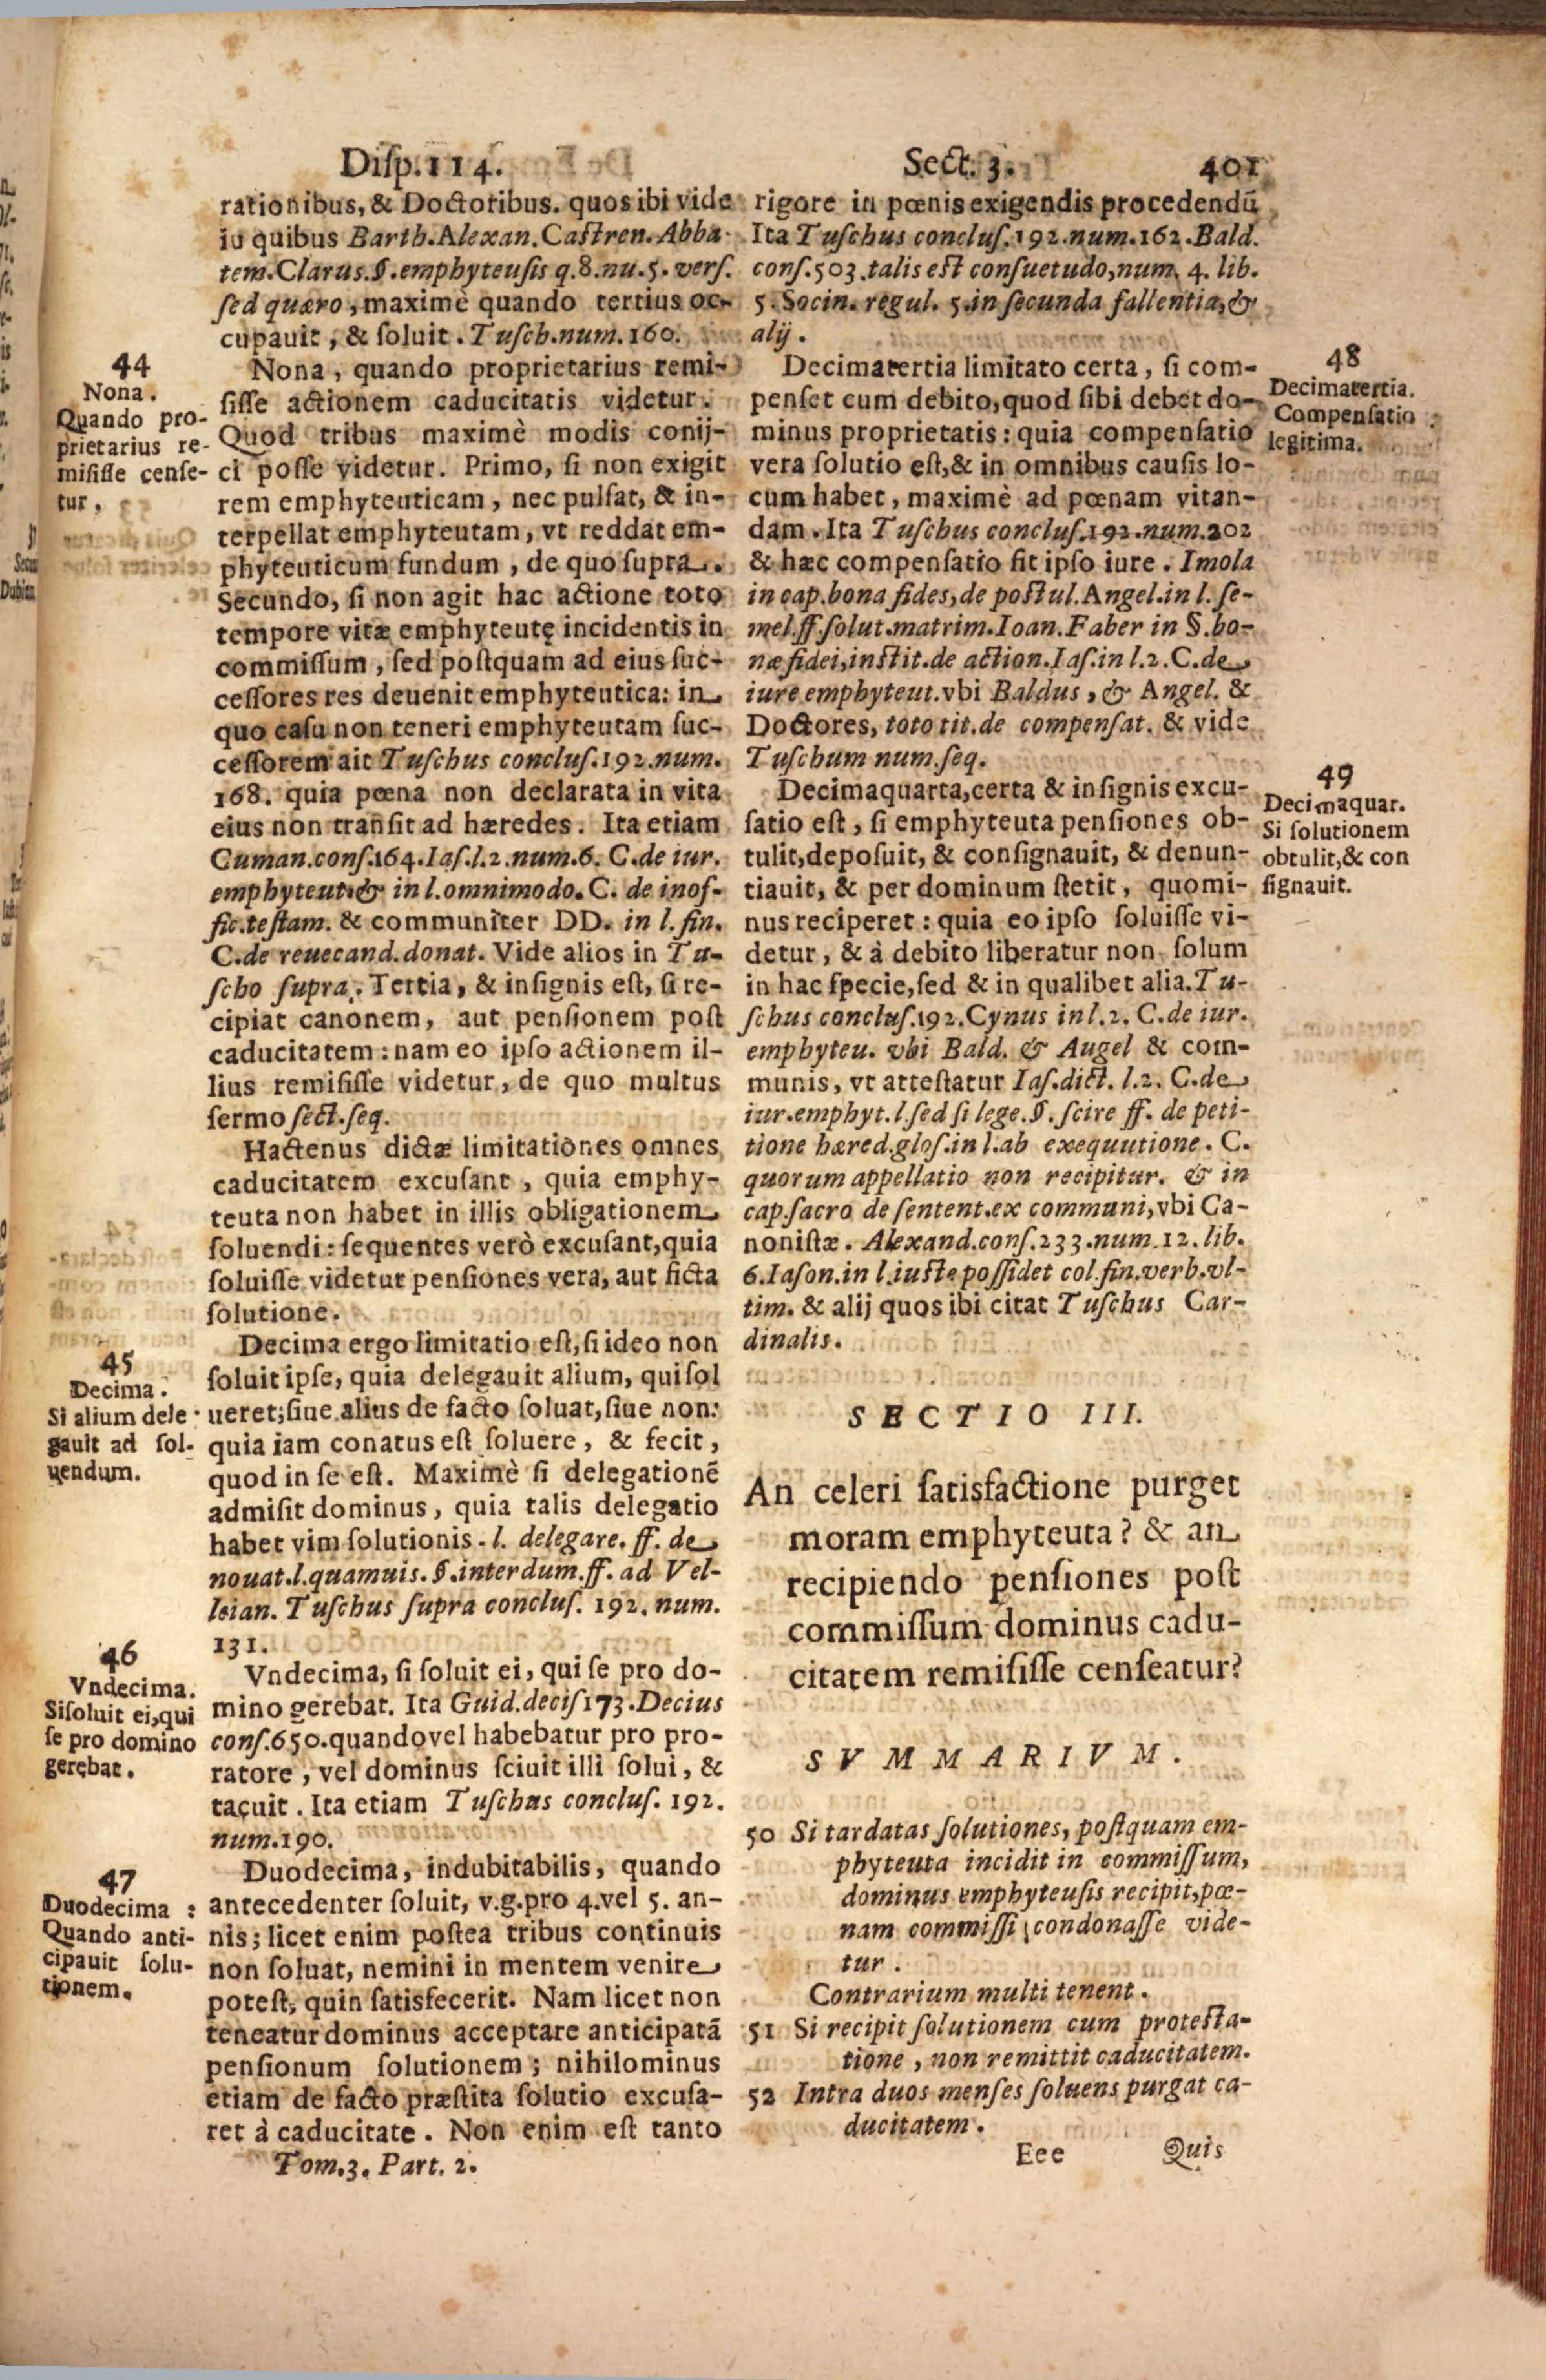 Disp.114. Sect. 3. 401
rationibus, & Doctoribus. quos ibi vide
iu quibus Barth. Alexan. Castren. Abba-
tem. Clarus. §. emphyteusis q.8.nu.5. vers.
sed quæro, maximè quando tertius oc-
cupauit, & soluit. Tusch.num.160.
44
Nona.
Quando pro-
prietarius re-
misisse cense-
tur.
Nona, quando proprietarius remi-
sisse actionem caducitatis videtur.
Quod tribus maximè modis conij-
ci posse videtur. Primo, si non exigit
rem emphyteuticam, nec pulsat, & in-
terpellat emphyteutam, vt reddat em-
phyteuticum fundum, de quo supra.
Secundo, si non agit hac actione toto
tempore vitæ emphyteutę incidentis in
commissum, sed postquam ad eius suc-
cessores res deuenit emphyteutica: in
quo casu non teneri emphyteutam suc-
cessorem ait Tuschus conclus.192.num.
168. quia pœna non declarata in vita
eius non transit ad hæredes. Ita etiam
Cuman.cons.164.Ias.l.2.num.6. C.de iur.
emphyteut.& in l.omnimodo. C. de inof-
fic.testam. & communiter DD. in l. fin.
C.de reuecand.donat. Vide alios in Tu-
scho supra. Tertia, & insignis est, si re-
cipiat canonem, aut pensionem post
caducitatem: nam eo ipso actionem il-
lius remisisse videtur, de quo multus
sermo sect.seq.
Hactenus dictæ limitationes omnes
caducitatem excusant, quia emphy-
teuta non habet in illis obligationem
soluendi: sequentes verò excusant, quia
soluisse videtur pensiones vera, aut ficta
solutione.
45
Decima.
Si alium dele
gauit ad sol-
uendum.
Decima ergo limitatio est, si ideo non
soluit ipse, quia delegauit alium, qui sol
ueret; siue alius de facto soluat, siue non:
quia iam conatus est soluere, & fecit,
quod in se est. Maximè si delegationē
admisit dominus, quia talis delegatio
habet vim solutionis. l. delegare. ff. de
nouat.l.quamuis. §.interdum.ff. ad Vel-
leian. Tuschus supra conclus. 192. num.
131.
46
Vndecima.
Si soluit ei, qui
se pro domino
gerebat.
Vndecima, si soluit ei, qui se pro do-
mino gerebat. Ita Guid.decis173.Decius
cons.650.quandovel habebatur pro pro-
ratore, vel dominus sciuit illi solui, &
tacuit. Ita etiam Tuschus conclus. 192.
num.190.
47
Duodecima:
Quando anti-
cipauit solu-
tionem.
Duodecima, indubitabilis, quando
antecedenter soluit, v.g.pro 4.vel 5. an-
nis; licet enim postea tribus continuis
non soluat, nemini in mentem venire
potest, quin satisfecerit. Nam licet non
teneatur dominus acceptare anticipatā
pensionum solutionem; nihilominus
etiam de facto præstita solutio excusa-
ret à caducitate. Non enim est tanto
Tom.3. Part. 2.
rigore in pœnis exigendis procedendū
Ita Tuschus conclus.192.num.162.Bald.
cons.503.talis est consuetudo, num. 4. lib.
5. Socin. regul. 5.in secunda fallentia, &
alij.
48
Decimatertia.
Compensatio
legitima.
Decimatertia limitato certa, si com-
penset cum debito, quod sibi debet do-
minus proprietatis: quia compensatio
vera solutio est, & in omnibus causis lo-
cum habet, maximè ad pœnam vitan-
dam. Ita Tuschus conclus.192.num.202
& hæc compensatio fit ipso iure. Imola
in cap.bona fides, de postul.Angel.in l. se-
mel.ff.solut.matrim.Ioan.Faber in §.bo-
næ fidei, instit.de action.Ias.in l.2.C.de
iure emphyteut.vbi Baldus, & Angel. &
Doctores, toto tit.de compensat. & vide
Tuschum num.seq.
49
Decimaquar.
Si solutionem
obtulit, & con
signauit.
Decimaquarta, certa & insignis excu-
satio est, si emphyteuta pensiones ob-
tulit, deposuit, & consignauit, & denun-
tiauit, & per dominum stetit, quomi-
nus reciperet: quia eo ipso soluisse vi-
detur, & à debito liberatur non solum
in hac specie, sed & in qualibet alia. Tu-
schus conclus.192.Cynus in l.2. C.de iur.
emphyteu. vbi Bald. & Augel & com-
munis, vt attestatur Ias.dict. l.2. C.de
iur.emphyt.l.sed si lege.§. scire ff. de peti-
tione hæred.glos.in l.ab exequutione. C.
quorum appellatio non recipitur. & in
cap.sacro de sentent.ex communi, vbi Ca-
nonistæ. Alexand.cons.233.num.12. lib.
6.Iason.in l.iuste possidet col.fin.verb.vl-
tim. & alij quos ibi citat Tuschus Car-
dinalis.
SECTIO III.
An celeri satisfactione purget
moram emphyteuta? & an
recipiendo pensiones post
commissum dominus cadu-
citatem remisisse censeatur?
SVMMARIVM.
50 Si tardatas solutiones, postquam em-
phyteuta incidit in commissum,
dominus emphyteusis recipit, pœ-
nam commissi condonasse vide-
tur.
Contrarium multi tenent.
51 Si recipit solutionem cum protesta-
tione, non remittit caducitatem.
52 Intra duos menses soluens purgat ca-
ducitatem.
Eee Quis